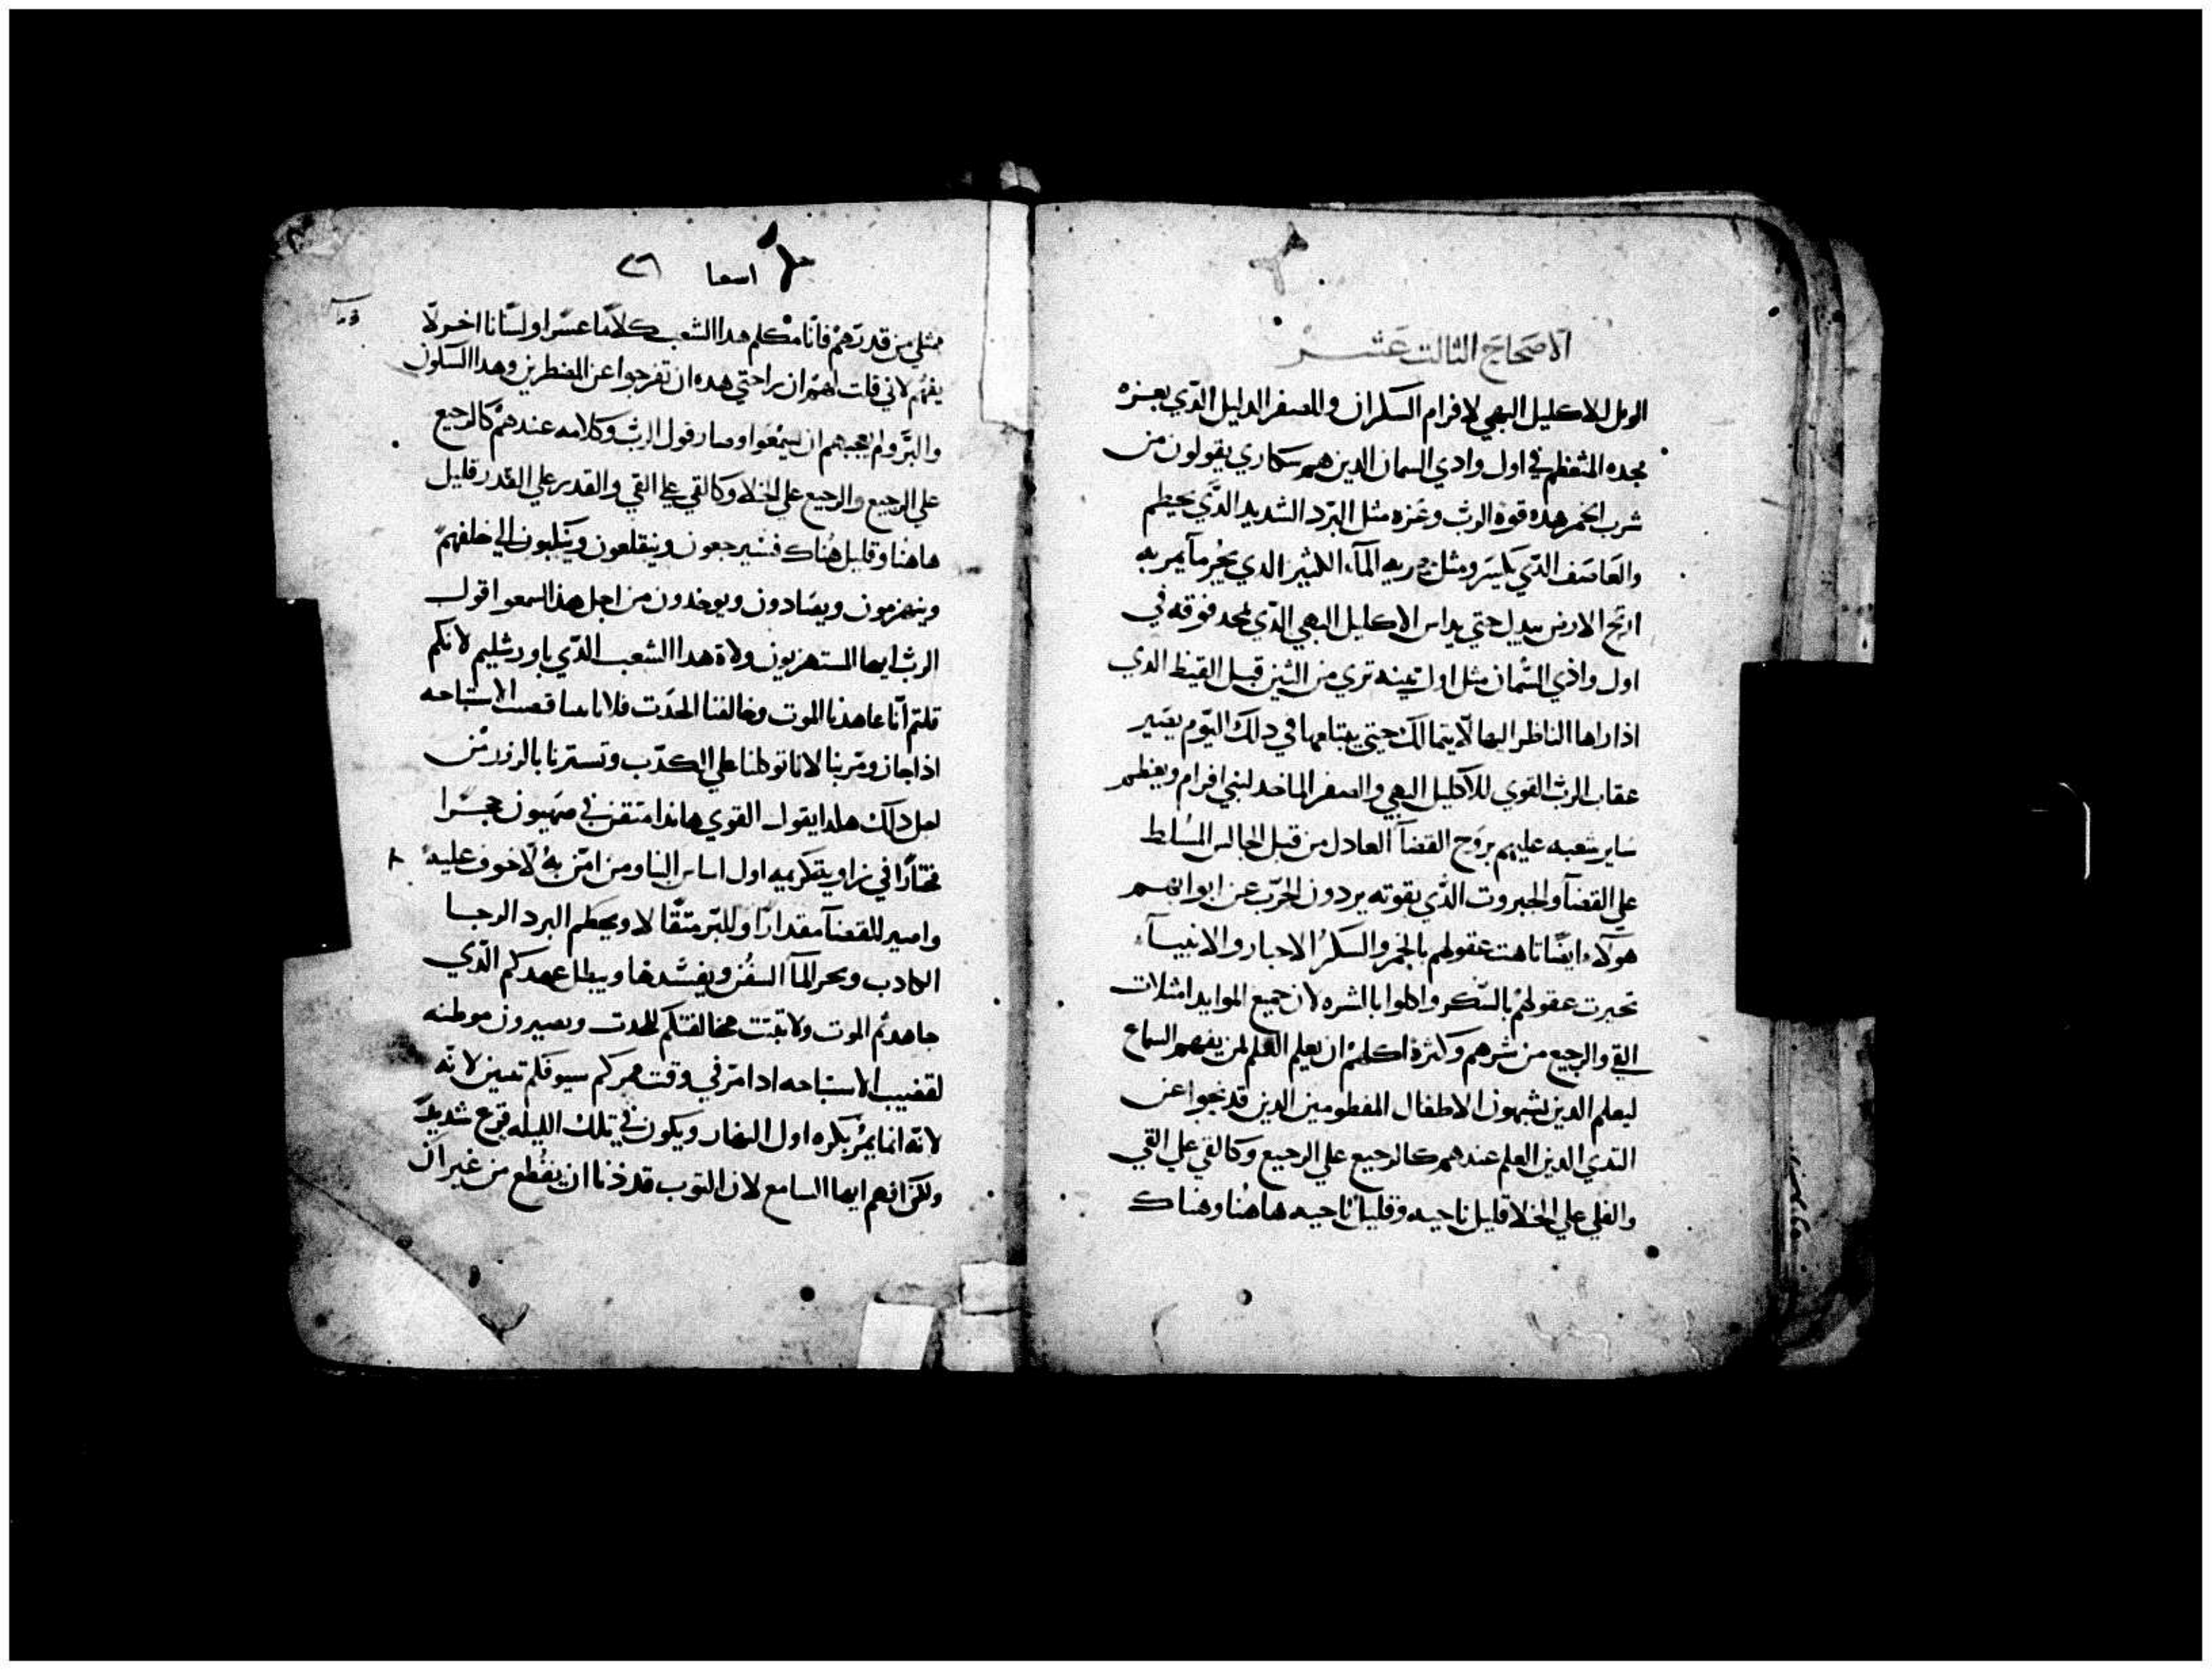 الاصحاح الثالت عشر
الويل للاكليل البهي لافرام السكران وللصفر الدليل الدي بعزه
مجده المتعظم في اول وادي السمان الدين هم سكاري يقولون من
شرب الخمر هده قوة الرب وعزه مثل البرد الشديد الدي يحطم
والعاصف الدي يكسر ومثل جريه المآء الكثير الدي يخر ما يمر به
الارض حتي يداس الاكليل البهي الدي فوقه في
اول وادي السمان مثل اول تينه تري من التين قبل القيظ الدي
اذا راها الناظر اليها لا يتمالك حتي يبتلعها في دلك اليوم يصير
عقاب الرب القوي للاكليل البهي والصفر لبني افرام ويعظم
ساير شعبه عليهم بروح القضآ العادل من قبل الجالس المسلط
علي القضآ والجبروت الدي بقوته يردون الحرب عن ابوابهم
هولاء ايضا تاهت عقولهم بالخمر والسكر الاحبار والانبيآء
تحيرت عقولهم بالسكر واكلوا بالشره لان جميع الموايد امتلات
القي والرجيع من شرهم وكثرة اكلهم ان يعلم العلم لمن يفهم السماع
ليعلم الدين يشبهون الاطفال المفطومين الدين قد نحوا عن
التدي الدين العلم عندهم كالرجيع علي الرجيع وكالقي علي القي
والقلي علي الخلا قليل ناحيه وقليل ناحيه هاهنا وهناك
اسعا ٢٦
مثلي من قدرتهم فانا مكلم هدا الشعب كلاما عسرا ولسانا اخر لا
يفهم لاني قلت لهم ان راحتي هده ان تفرجوا عن المضطرين وهدا السكون
والبر ولم يعجبهم ان يسمعوا وصار قول الرب وكلامه عندهم كالرجيع
علي الرجيع والرجيع علي الخلا وكالقي علي القي والقدر علي القدر قليل
هاهنا وقليل هناك فسيرجعون وينقلعون وينكبون الي خلفهم
وينهزمون ويصادون ويوخدون من اجل هذا اسمعوا قول
الرب ايها المستهزيون ولاة هدا الشعب الدي باورشليم لانكم
قلتم انا عاهدنا الموت وخالفنا الحدت فلا الاستباحه
اذا جاز ومر بنا لانا توكلنا علي الكدب وتسترنا بالزور من
اجل دلك هكدا يقول القوي هاندا متقن في صهيون حجرا
مختارا في زاويه كريمه اول اساس البنا ومن امن به لا خوف عليه
واصير للقضآ مقدارا وللبر متقالا ويحطم البرد الرجا
الكادب المآ السفن ويفسدها ويبطل عهدكم الدي
عاهدتم الموت ولا تبتت مخالفتكم للحدت وتصيرون موطنه
لقضيب الاستباحه ادا مر في وقت لانه
لانه انما يمر بكره اول النهار ويكون في تلك الليله فزع شديد
ولكن افهم ايها السامع لان التوب قد دنا ان يقطع من غير ان